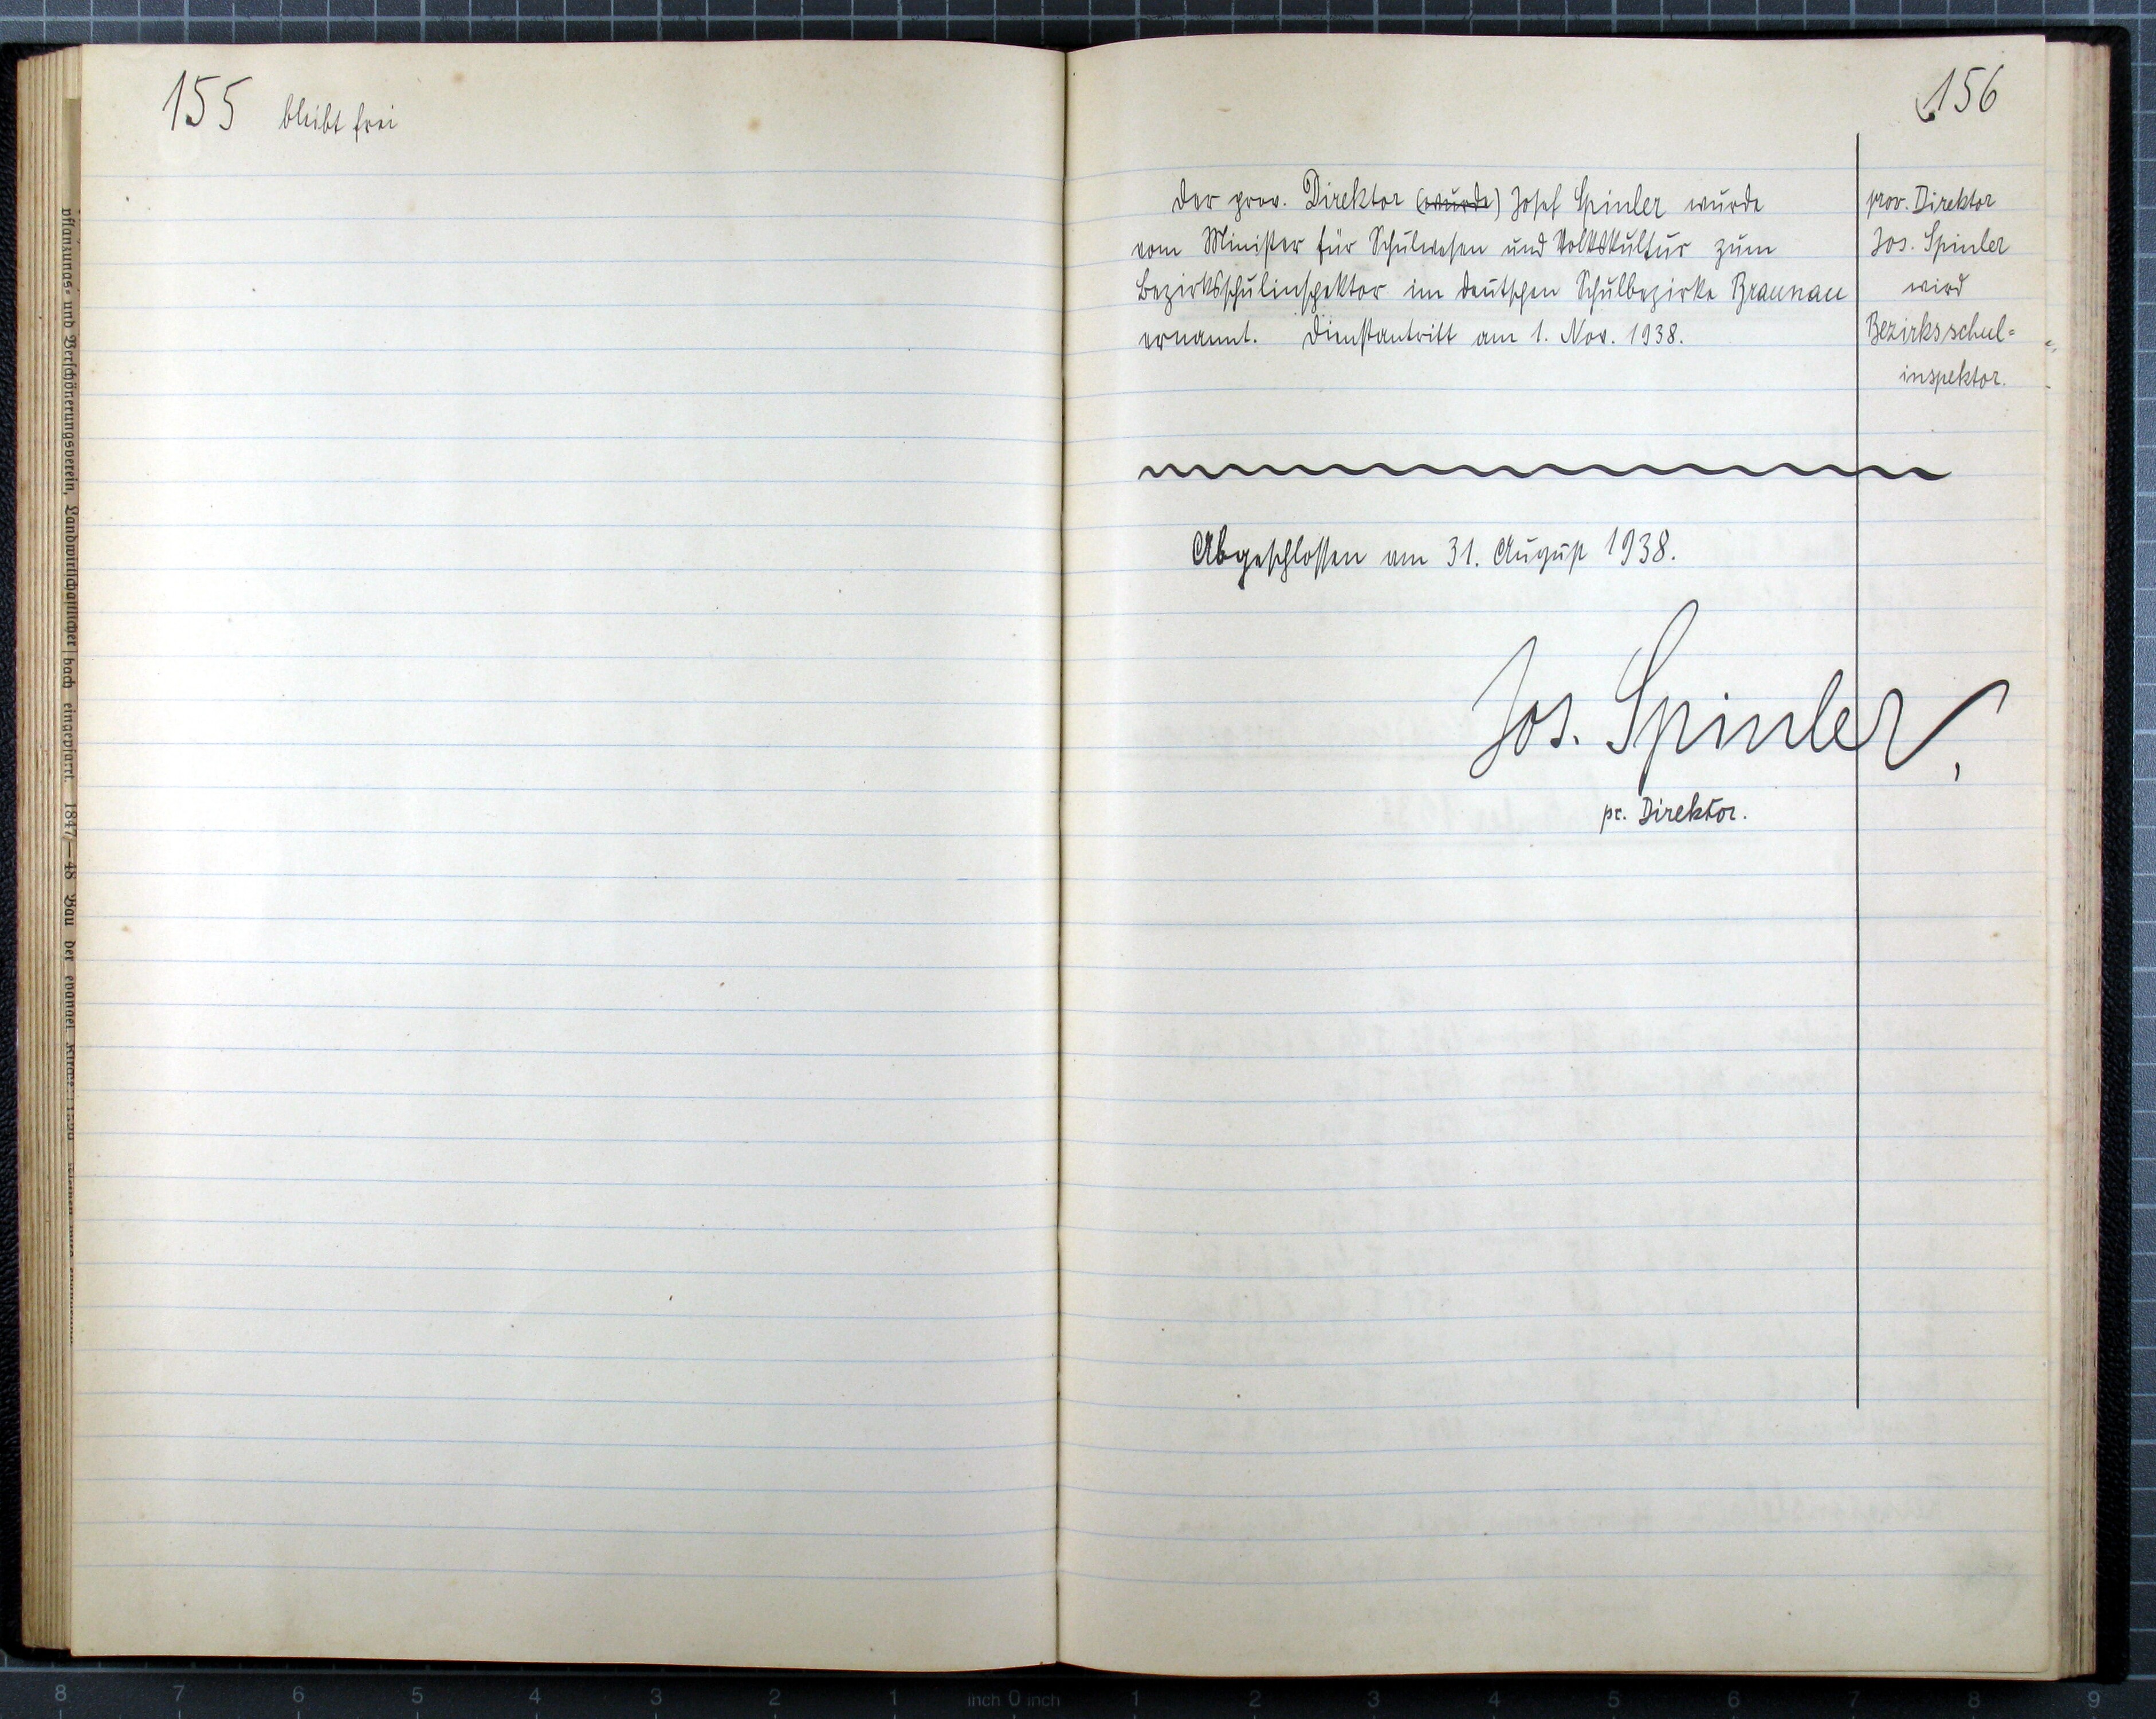 155 bleibt frei
156
Der prov. Direktor (wurde) Josef Spinler wurde
vom Minister für Schulwesen und Volkskultur zum
Bezirksschulinspektor im deutschen Schulbezirke Braunau
ernannt. Dienstantritt am 1. Nov. 1938.
prov. Direktor
Jos. Spinler
wird
Bezirksschul=
inspektor.
Abgeschlossen am 31. August 1938.
Jos. Spinler
pr. Direktor.
pflanzungs- und Verschönerungsverein, Landwirtschaftlicher
nach eingepfarrt 1847—48 Bau der evangel.
8 7 6 5 4 3 2 1 inch 0 inch 1 2 3 4 5 6 7 8 9